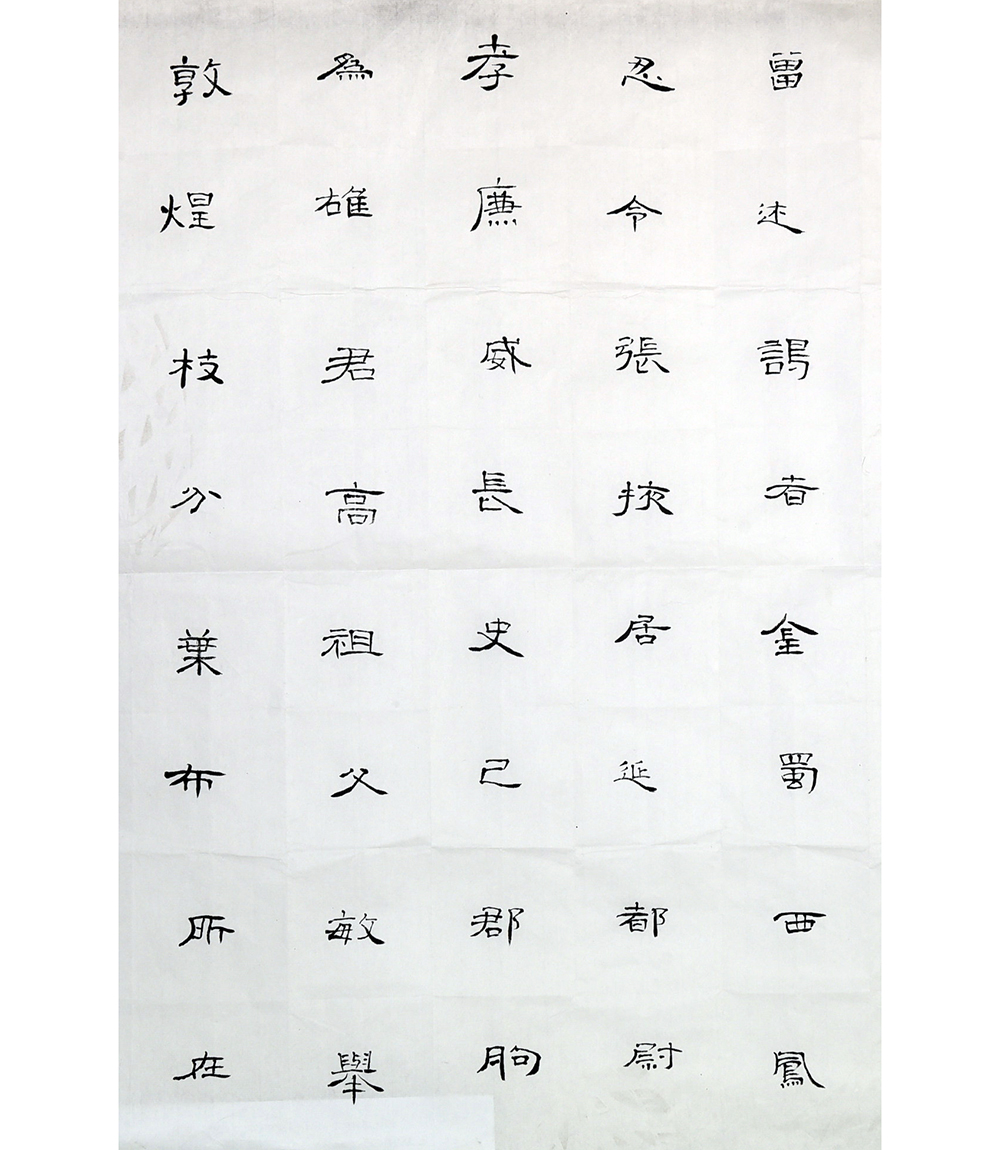 敦煌枝分葉布所在
為雄君高祖父敏舉
孝廉威長史巳郡朐
忍令張掖居延都尉
曾述謁者金蜀西鳳